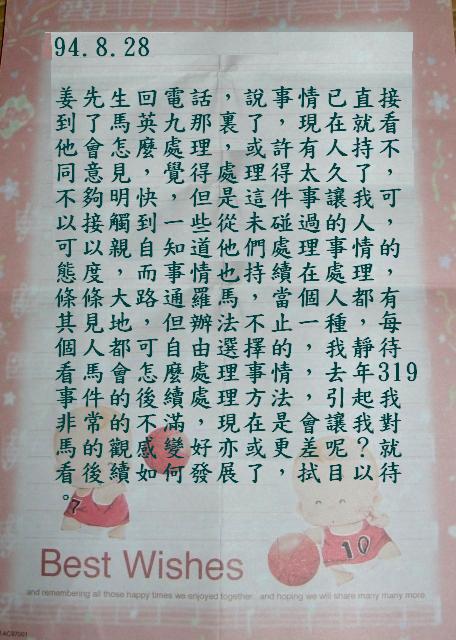 94.8.28
姜先生回電話，說事情已直接
到了馬英九那裏了，現在就看
他會怎麼處理，或許有人持不
同意見，覺得處理得太久了，
不夠明快，但是這件事讓我可
以接觸到一些從未碰過的人，
可以親自知道他們處理事情的
態度，而事情也持續在處理，
條條大路通羅馬，當個人都有
其見地，但辦法不止一種，每
個人都可自由選擇的，我靜待
看馬會怎麼處理事情，去年319
事件的後續處理方法，引起我
非常的不滿，現在是會讓我對
馬的觀感變好亦或更差呢？就
看後續如何發展了，拭目以待
。
7
10
Best Wishes
and remembering all those happy times we enjoyed together and hoping we will share many many more